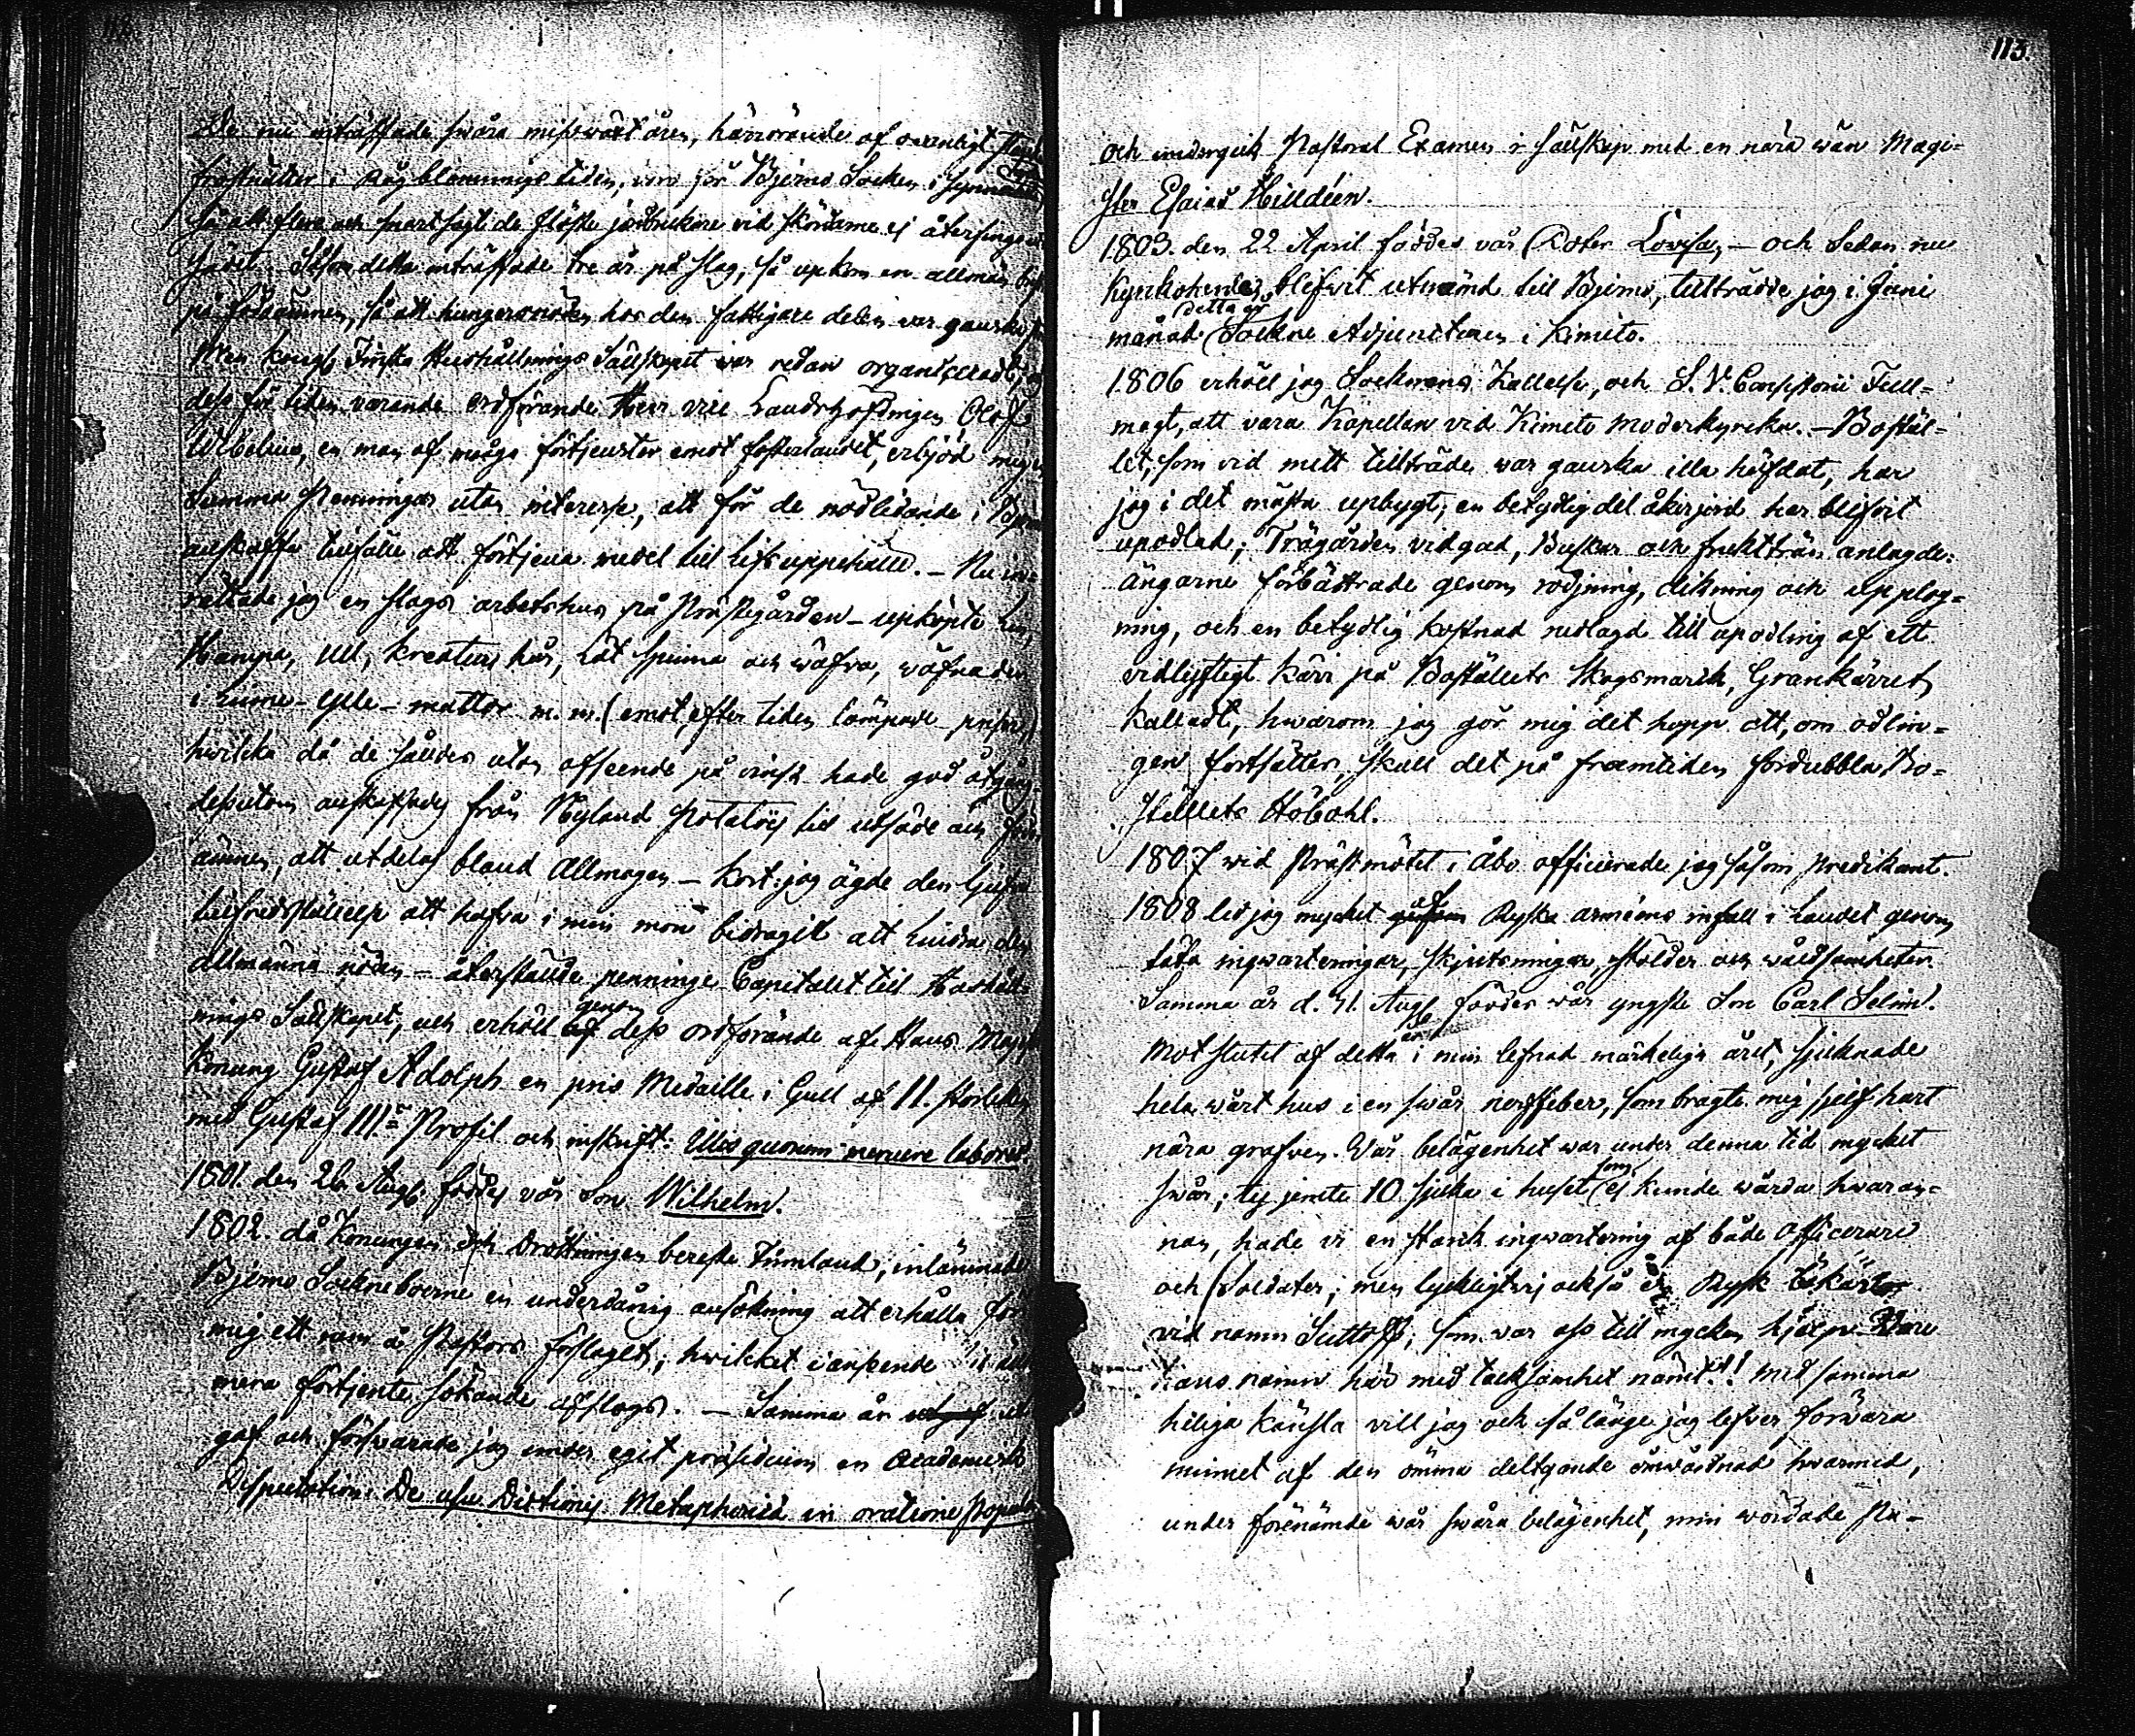 De nu inträffade swåra misswäxt åren, härrörande af ovanligt
frostnätter i Rågblomnings tiden, voro för Bjerno Socken i synnerhet
så att flere och snart sagt de flöste jordbrukare vid skördarne ej återfingo
Sådet. Såsom detta inträffade tre år på slag, så upkom en allmän brist
på födoämnen, så att hungersnöden hos den fattigare delen var ganska
Men kongl. Finska Hushållnings Sällskapet war redan organiceradt,
dess för tiden varande Ordförande Herr vice Landshöfdingen Olof
Wibelius, en man af många förtjenster emot fosterlandet, erbjöd mig
Summa Penningar utan interesse, att för de nödlidande i
anskaffa tillfälle att förtjena medel till Lifsuppehälle. – Nu in-
rättade jag en slags arbetshus på Prästgården – upköpte Lin,
Hampa, Ull, kreaturs hår, lät spinna och wäfva, wäfnader
i Linne – Ylle – mattor m.m. (emot, efter tiden lämpade priser,)
hvilka då de såldes utan afseende på vinst hade god åtgång.
dessutom anskaffades från Nyland Potatoes till utsäde och födo
ämnen, att utdelas bland Allmogen – Kort: jag ägde den ljufva
tillfredsställelse att hafva i min mon bidragit att lindra den
allmänna nöden – återstälde penninge Capitalet till Hushåll-
nings Sällskapet, och erhöll af genom dess ordförande af Hans Majest
Konung Gustaf Adolph en pris Medaille i Gull af 11. storleken
med Gustaf III:s Profil och inskrift: Illis quorum meruere labores.
1801. den 26 Aug. föddes vår Son Wilhelm.
1802. då Konungen och Drottningen bereste Finnland, inlämnade
Bjerno Sockneboerne en underdånig ansökning att erhålla för
mig ett rum å Pastors förslaget; hwilket i anseende til
mera förtjente sökande afslogs. – Samma år utgaf ut
gaf och försvarade jag under eget præsidium en Academisk
Disputation: De usu Dictionis Metaphoricæ in oratione
113.
och undergick Pastoral Examen i sällskap med en nära wän Magi-
ster Esaias Hilldéen.
1803. den 22 April föddes vår Doter Lovisa, – och Sedan nu
Kyrkoherden blifwit utnämd till Bjerno, tillträdde jag i Juni
månad detta år Sockne Adjuncturen i Kimito.
1806 erhöll jag Socknens Kallelse, och S. V. Consistorii Full-
magt, att vara Kapellan vid Kimito Moderkyrka. – Bostäl-
let, som vid mitt tillträde war ganska illa häfdat, har
jag i det mästa upbygt; en betydlig del åkerjord har blifvit
upodlad; Trägården vidgad, Buskar och fruktträn anlagde:
ängarne förbättrade genom rödjning, dikning och upplog-
ning, och en betydlig kostnad nedlagd till upodling af ett
vidlyftigt Kärr på Boställets Skogsmark, Grankärret
kalladt, hwarom jag gör mig det hopp att, om odlin-
gen fortsättes, skall det på framtiden fördubbla Bo-
ställets Höbohl.
1807 wid Prästmötet i Åbo officierade jag såsom predikant.
1808 led jag mycket af Ryska arméens infall i Landet genom
täta inqwarteringar, skjutsningar, stölder och wåldsamheter.
Samma år d. 31. Aug. föddes wår yngste Son Carl Selim.
Mot slutet af detta i min lefnad märkeliga året, sjuknade
hela wårt hus i en swår nerffeber, som bragte mig sjelf hart
nära grafven. Vår belägenhet war under denna tid mycket
swår; ty jemte 10 sjuka i huset som ej kunde wårda hwaran-
nan, hade vi en stark inqwartering af både Officerare
och Soldater; men lyckligtvis också en Rysk Läkare
vid namn Suttoff, som var oss till mycken hjelp. Vare
hans namn här med tacksamhet nämt!! Med samma
heliga känsla vill jag och så länge jag lefver förvara
minnet af den ömma deltagande omwårdnad hwarmed,
under förenämde wår swåra belägenhet, min wördade Pa-